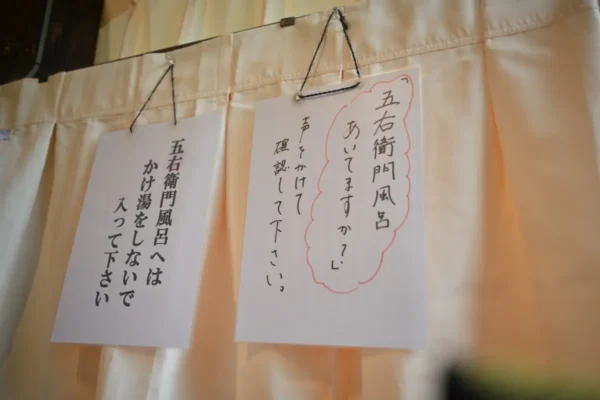 「五右衛門風呂
あいてますか?」
声をかけて
確認して下さい。
五右衛門風呂へは
かけ湯をしないで
入って下さい